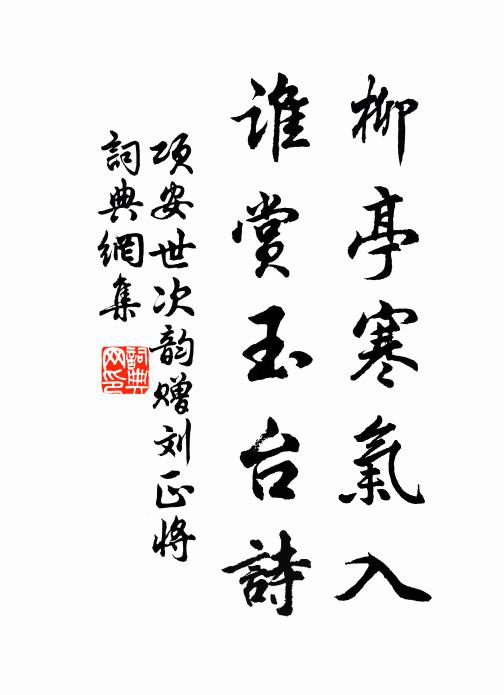 柳亭寒氣入
誰賞玉台詩
項安世次韵贈刘正將
詞典網集
詞典
网印